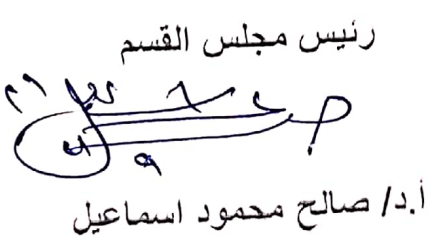 رئيس مجلس القسم
أ.د/ صالح محمود اسماعيل